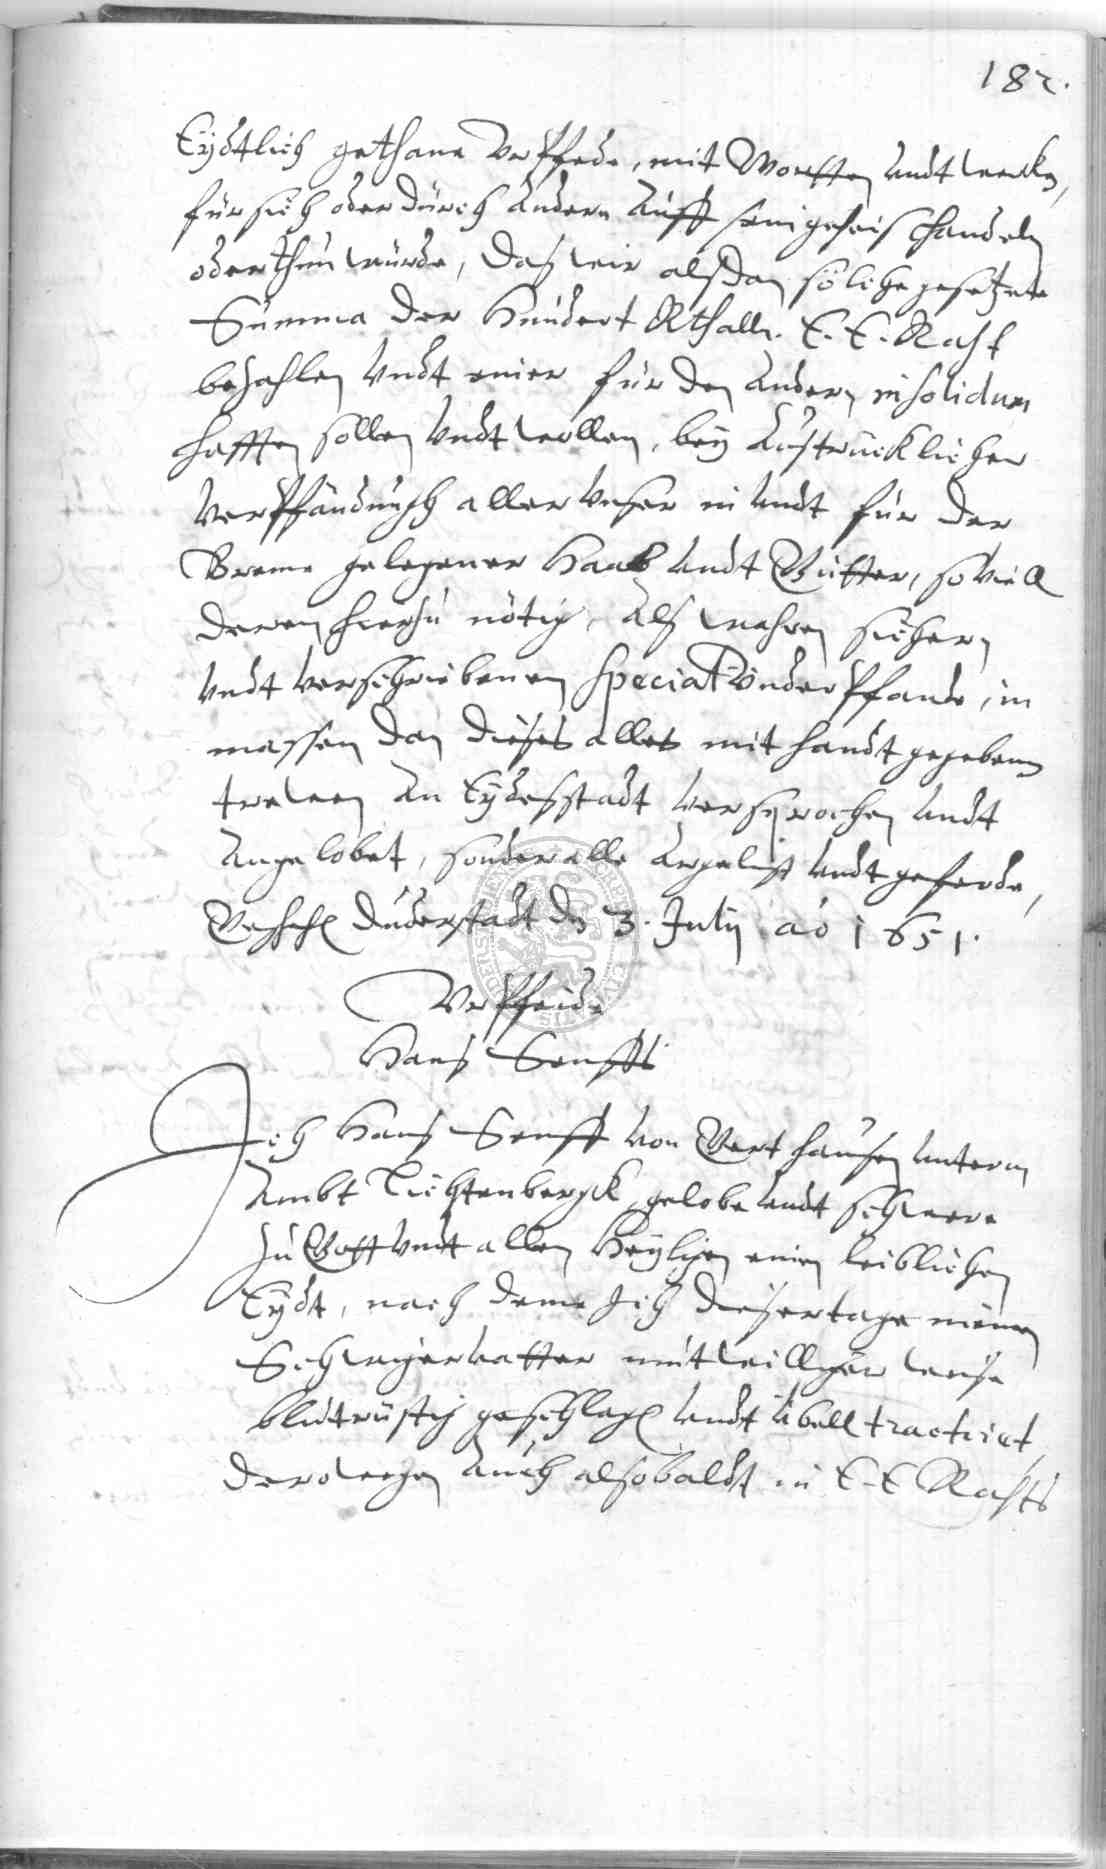 182.
Eÿdtlich gethane Urpfede, mit Wortten undt wercken,
für sich oder dürch andern auff sein geheis handeln
oder thun würde, daß wir alßdan solche gesetzte
Summa der Hundert Rthall. E. E. Raht
bezahlen undt einer für den andern in solidum
hafften sollen undt wollen, beÿ austrücklicher
Verpfändungh aller unser in undt für der
gelegener Haab undt Gütter, so viell
deren hierzu nötig, alß wahren sichern
undt verschriebenen special underpfande, in
massen dan dieses alles mit handtgegebenen
trewen an Eÿdesstadt versprochen undt
angelobet, sonder alle argelist undt geferde,
Duderstadt den 3. Julij aō 1651.
Urpfeide
Hans Senffts
Ich Hans Senfft von unterm
Ambt Lichtenbergk, gelobe undt schwere
zu Gott undt allen Heÿligen einen leiblichen
Eÿdt, nach deme Ich dieser tage meinen
Schwigervatter mutwilliger weise
blutrüstig geschlagen undt übell tractiret,
derowegen auch alsobaldt in E. E. Rahts